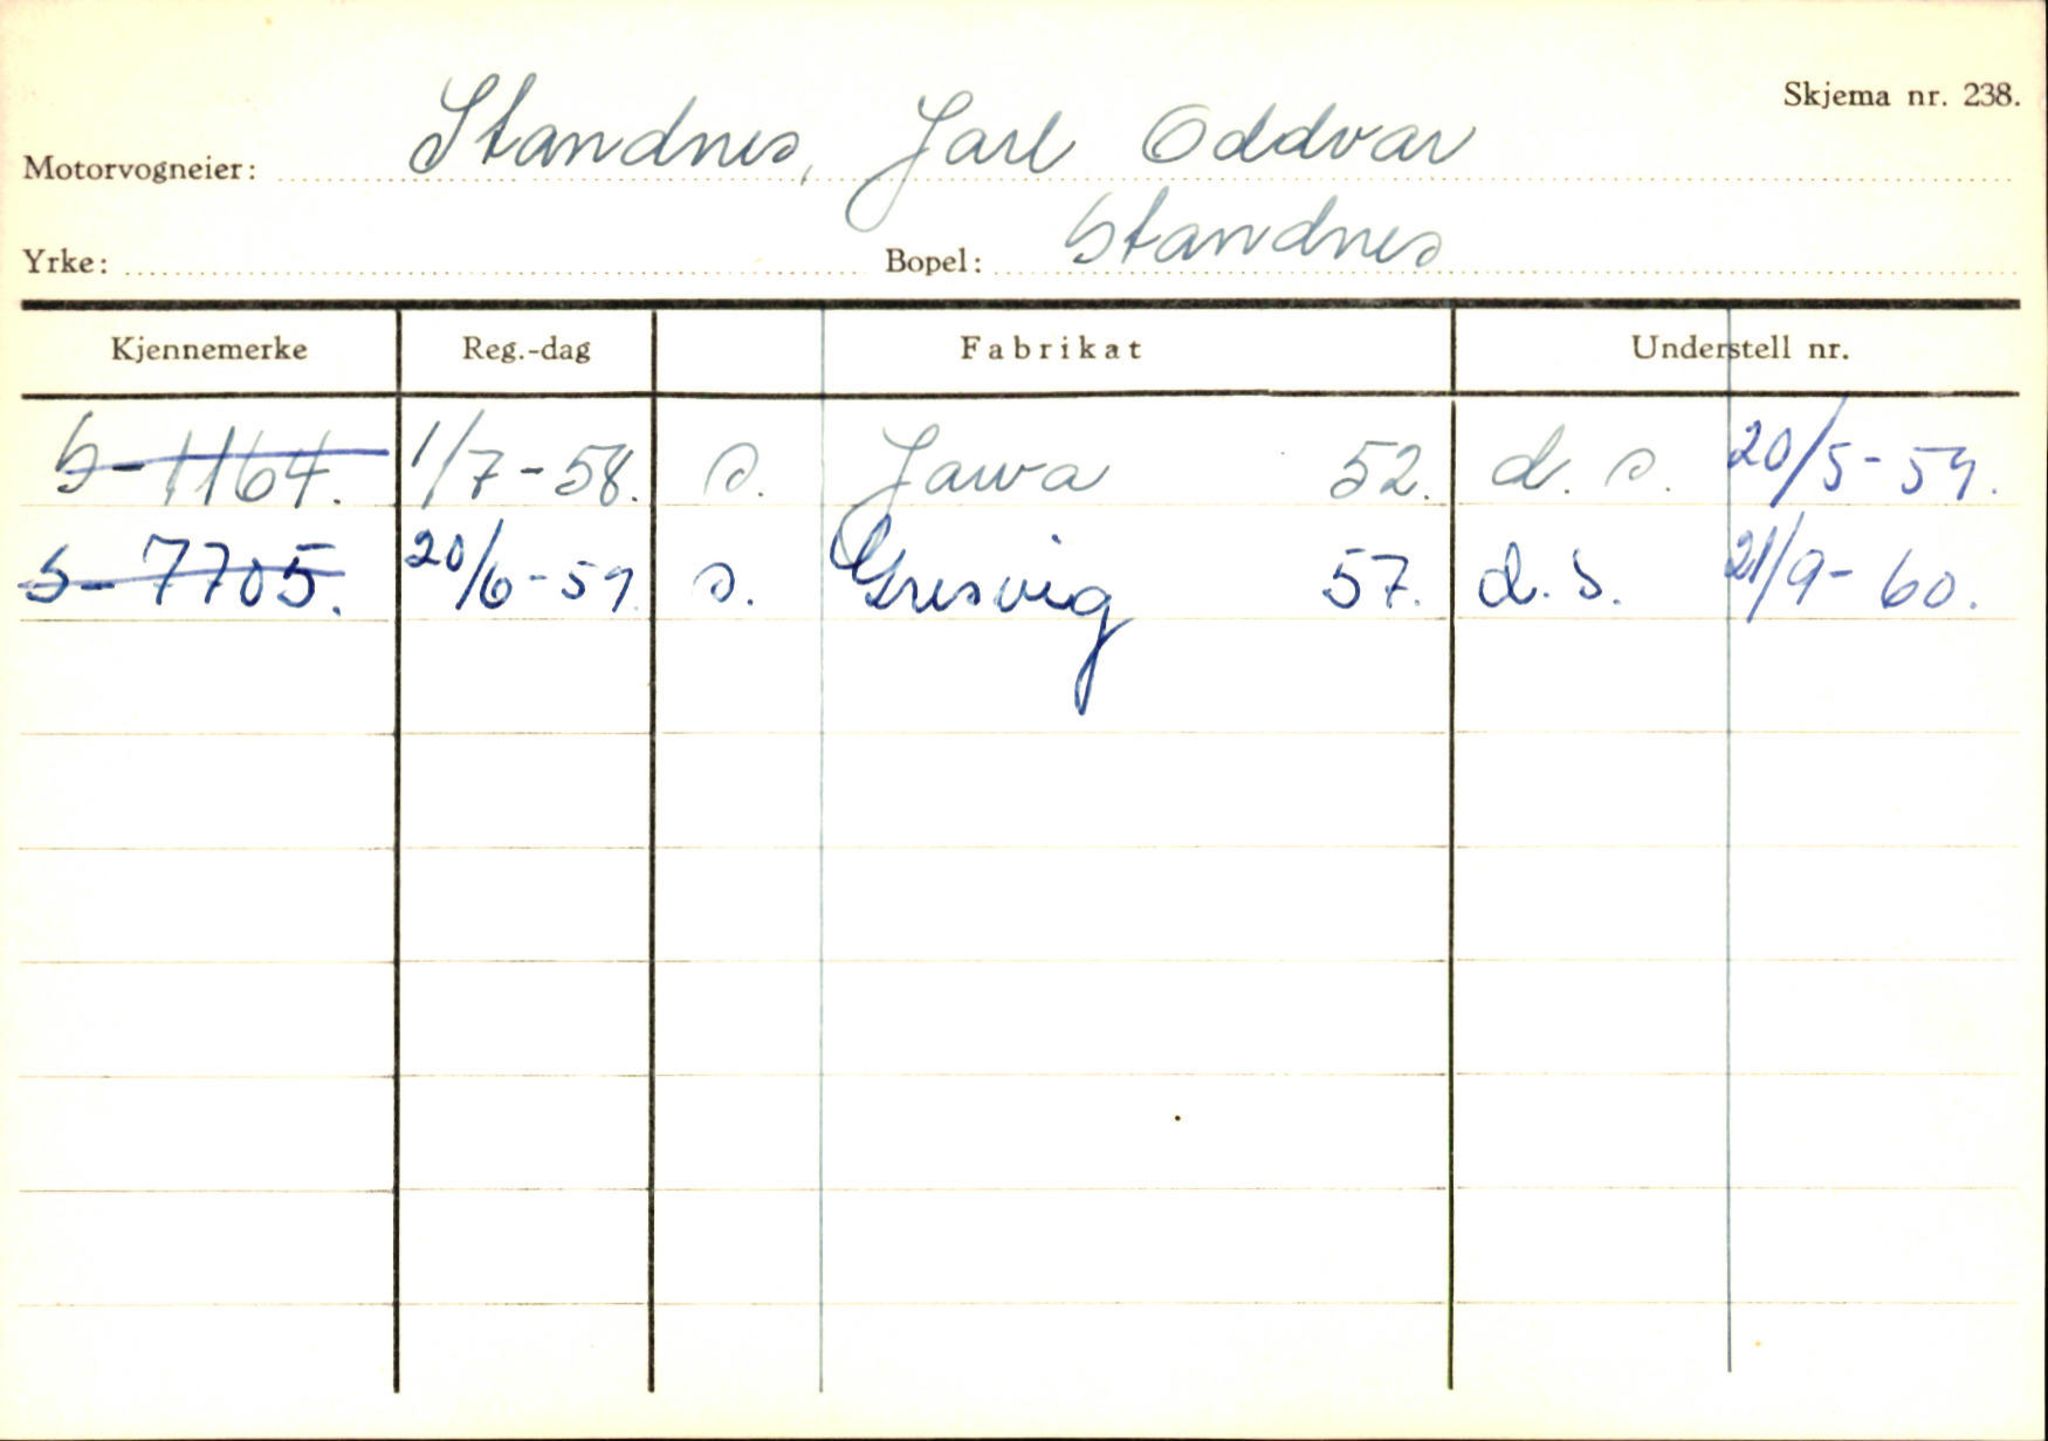 Skjema nr. 238.
Motorvogneier: Standnes, Jarl Oddvar
Yrke: Bopel: Standnes
Kjennemerke Reg.-dag Fabrikat Understell nr.
S-1164. 1/7-58. s. Jawa 52. d. s. 20/5-59.
S-7705. 20/6-59. s. Gresvig 57. d. s. 21/9-60.